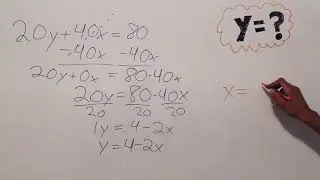 20y+40x=80
-40x -40x
20y+0x = 80-40x
20y=80-40x
20 20 20
1y=4-2x
y=4-2x
y=?
x=